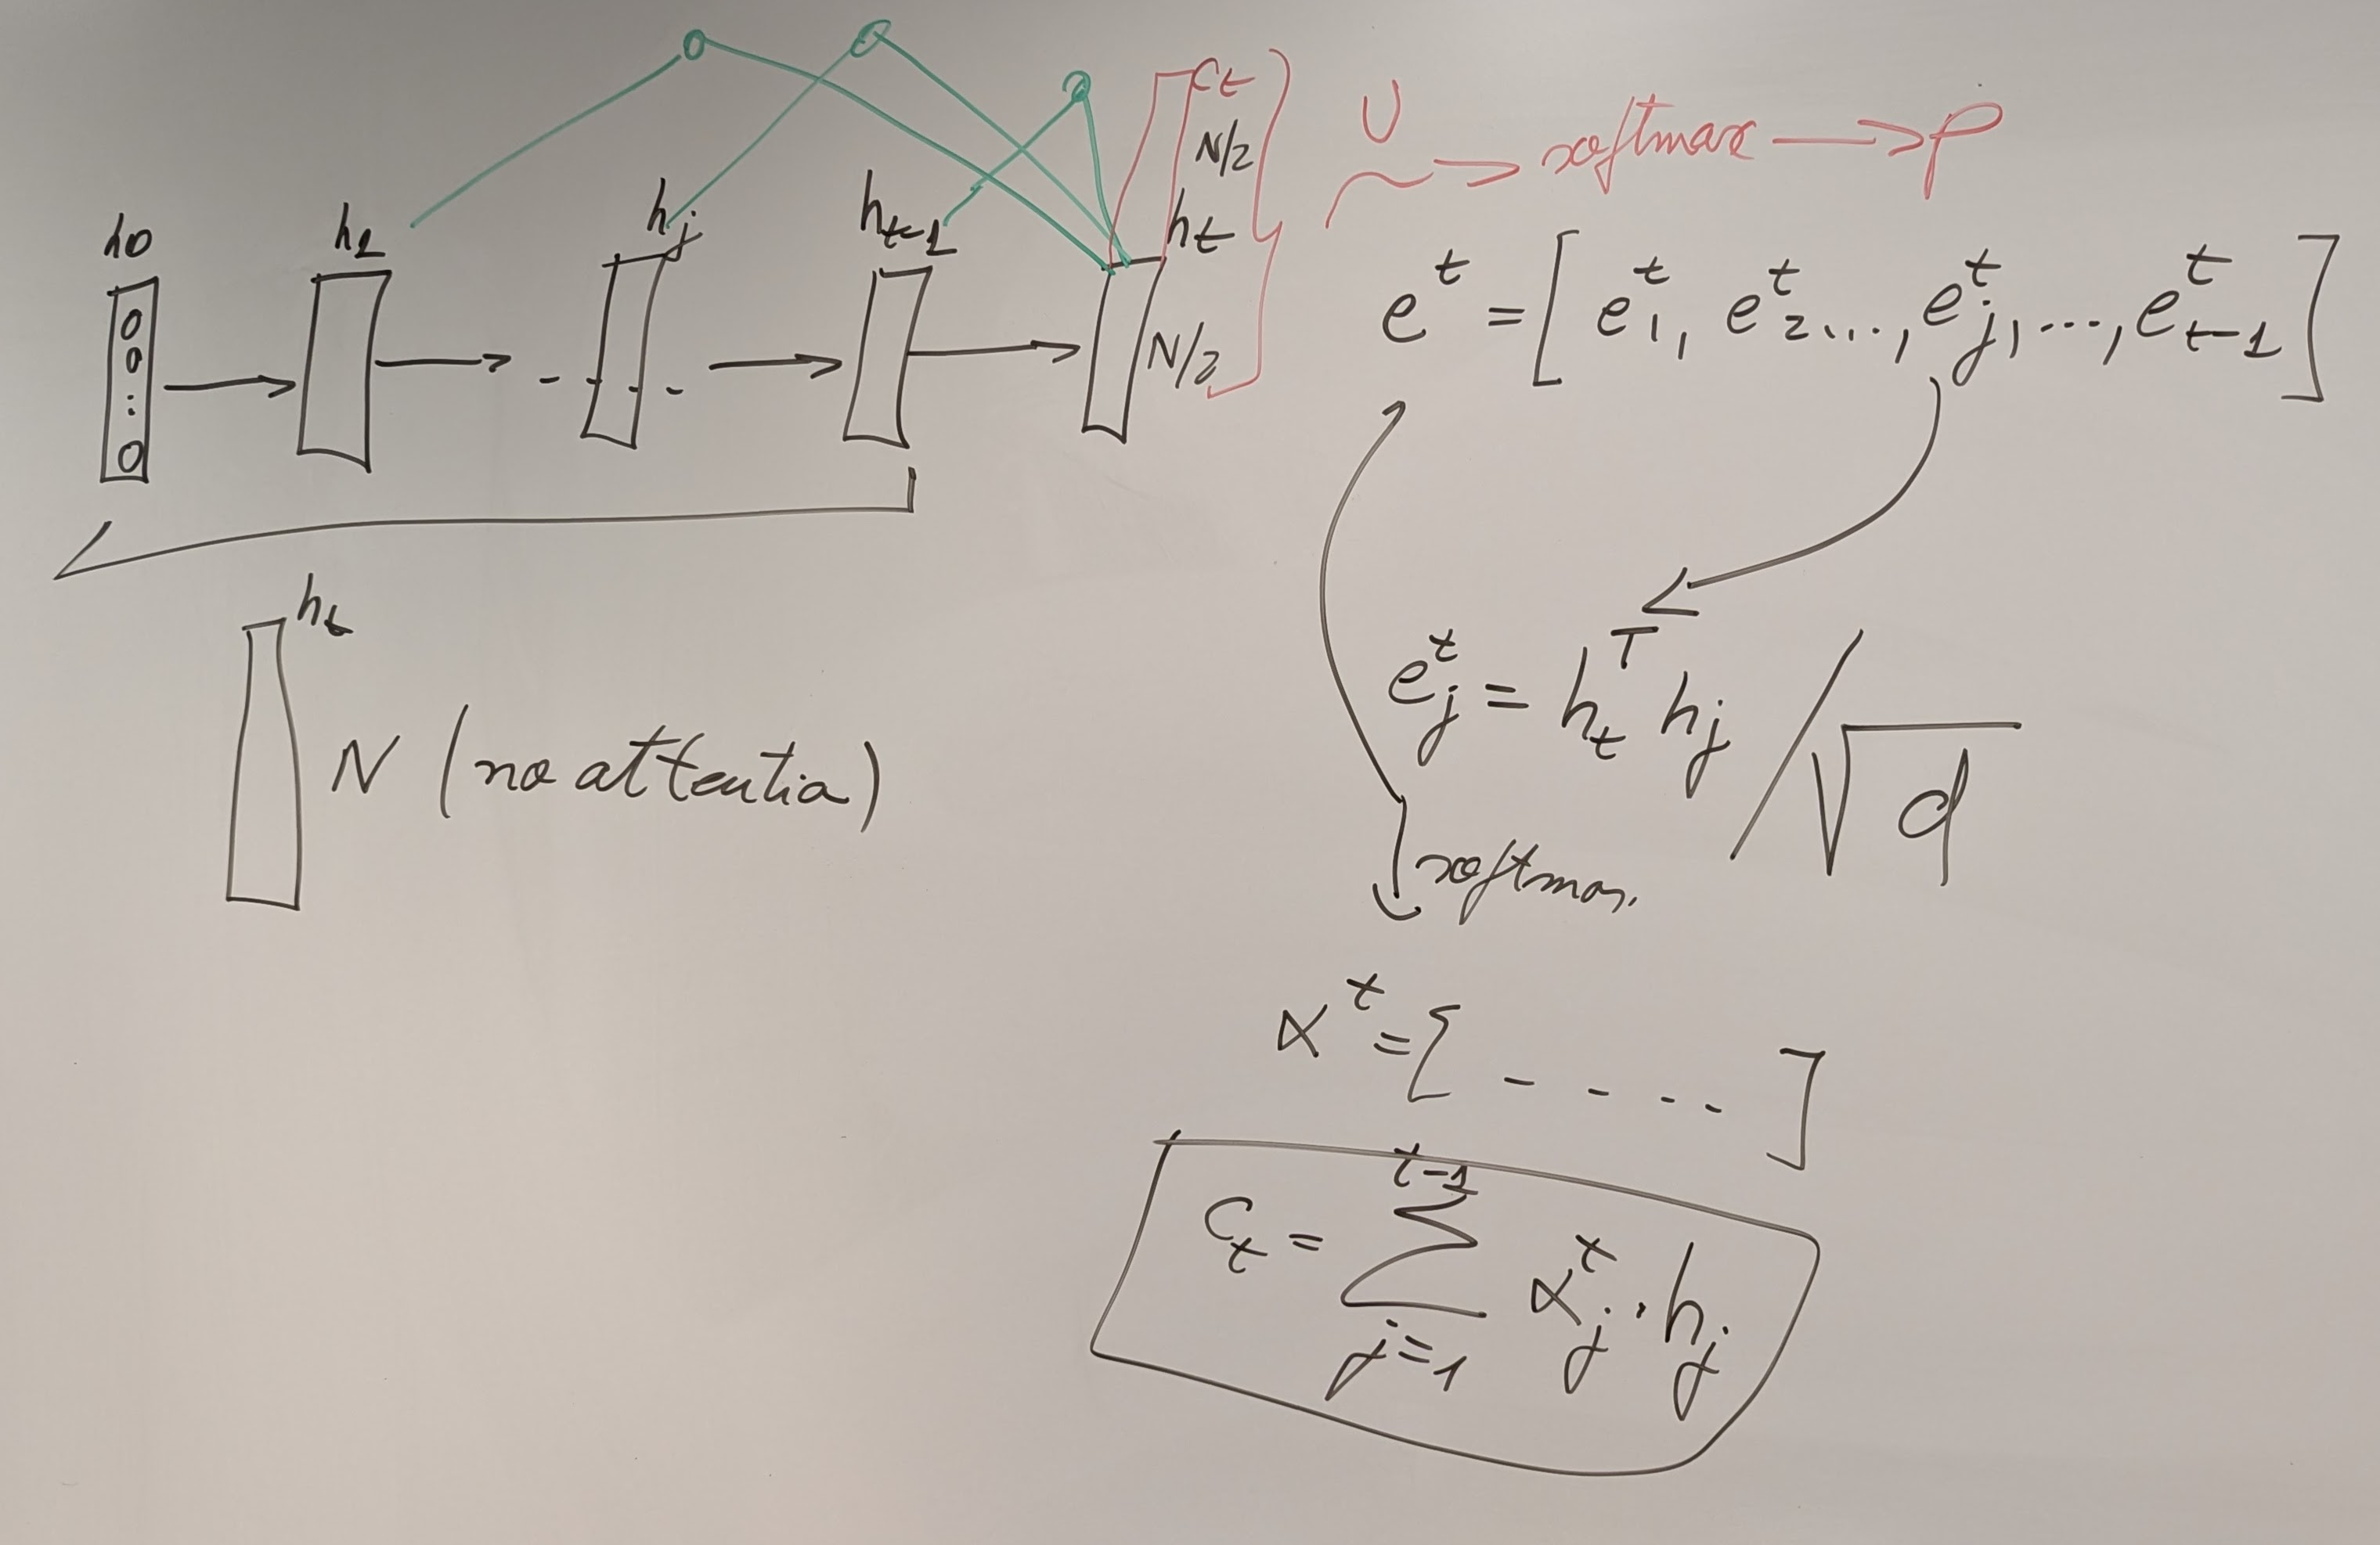 h0 h1 hj ht-1 ht
ct
N/2
N/2
U
softmax → p
e^t = [e_1^t, e_2^t ..., e_j^t, ..., e_{t-1}^t]
ht
N (no attentia)
e_j^t = h_t^T h_j / √d
softmax
α^t = [ - - - - ]
c_t = Σ_{j=1}^{t-1} α_j^t · h_j